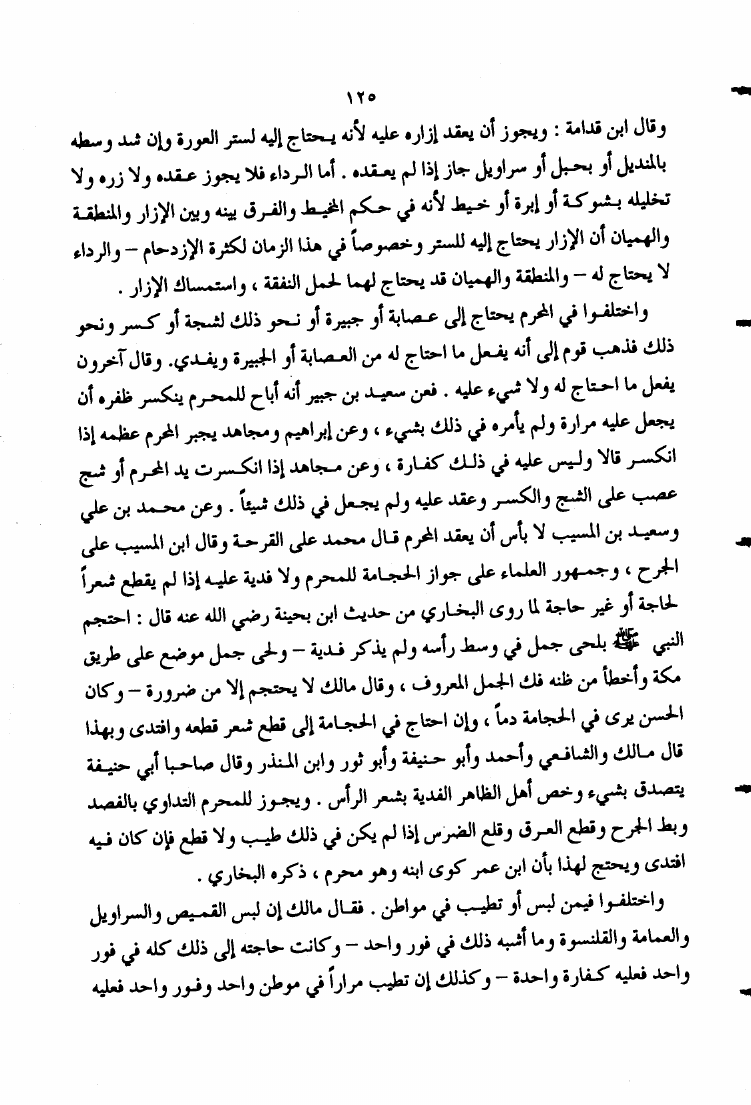 ١٢٥
وقال ابن قدامة : ويجوز أن يعقد إزاره عليه لأنه يحتاج إليه لستر العورة وإن شد وسطه
بالمنديل أو بحبل أو سراويل جاز إذا لم يعقده . أما الرداء فلا يجوز عقده ولا زره ولا
تخليله بشوكة أو إبرة أو خيط لأنه في حكم المخيط والفرق بينه وبين الإزار والمنطقة
والهميان أن الإزار يحتاج إليه للستر وخصوصاً في هذا الزمان لكثرة الإزدحام – والرداء
لا يحتاج له – والمنطقة والهميان قد يحتاج لهما لحمل النفقة ، واستمساك الإزار .
واختلفوا في المحرم يحتاج إلى عصابة أو جبيرة أو نحو ذلك لشجة أو كسر ونحو
ذلك فذهب قوم إلى أنه يفعل ما احتاج له من العصابة أو الجبيرة ويفدي. وقال آخرون
يفعل ما احتاج له ولا شيء عليه . فعن سعيد بن جبير أنه أباح للمحرم ينكسر ظفره أن
يجعل عليه مرارة ولم يأمره في ذلك بشيء ، وعن إبراهيم ومجاهد يجبر المحرم عظمه إذا
انكسر قالا وليس عليه في ذلك كفارة ، وعن مجاهد إذا انكسرت يد المحرم أو شج
عصب على الشج والكسر وعقد عليه ولم يجعل في ذلك شيئاً . وعن محمد بن علي
وسعيد بن المسيب لا بأس أن يعقد المحرم قال محمد على القرحة وقال ابن المسيب على
الجرح ، وجمهور العلماء على جواز الحجامة للمحرم ولا فدية عليه إذا لم يقطع شعراً
لحاجة أو غير حاجة لما روى البخاري من حديث ابن بحينة رضي الله عنه قال : احتجم
النبي ﷺ بلحى جمل في وسط رأسه ولم يذكر فدية – ولحى جمل موضع على طريق
مكة وأخطأ من ظنه فك الجمل المعروف ، وقال مالك لا يحتجم إلا من ضرورة – وكان
الحسن يرى في الحجامة دماً ، وإن احتاج في الحجامة إلى قطع شعر قطعه وافتدى وبهذا
قال مالك والشافعي وأحمد وأبو حنيفة وأبو ثور وابن المنذر وقال صاحبا أبي حنيفة
يتصدق بشيء وخص أهل الظاهر الفدية بشعر الرأس . ويجوز للمحرم التداوي بالفصد
وبط الجرح وقطع العرق وقلع الضرس إذا لم يكن في ذلك طيب ولا قطع فإن كان فيه
افتدى ويحتج لهذا بأن ابن عمر كوى ابنه وهو محرم ، ذكره البخاري .
واختلفوا فيمن لبس أو تطيب في مواطن . فقال مالك إن لبس القميص والسراويل
والعمامة والقلنسوة وما أشبه ذلك في فور واحد – وكانت حاجته إلى ذلك كله في فور
واحد فعليه كفارة واحدة – وكذلك إن تطيب مراراً في موطن واحد وفور واحد فعليه